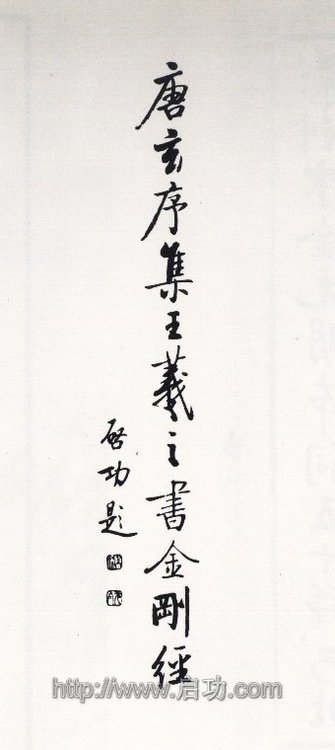 唐玄序集王羲之書金剛經
啓功題
http://www.启功.com